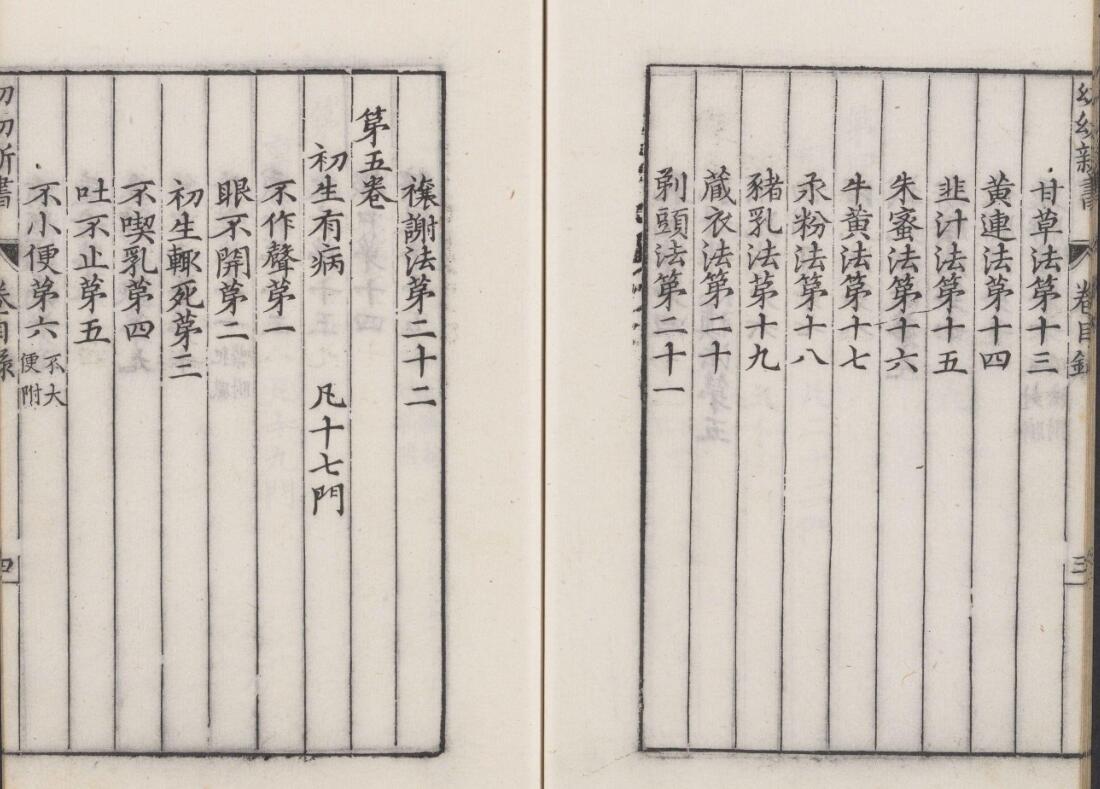 幼幼新書 卷目錄 三
甘草法第十三
黄連法第十四
韭汁法第十五
朱蜜法第十六
牛黄法第十七
汞粉法第十八
豬乳法第十九
蔵衣法第二十
剃頭法第二十一
禳謝法第二十二
第五卷
初生有病 凡十七門
不作聲第一
眼不開第二
初生輙死第三
不喫乳第四
吐不止第五
不小便第六 不大便附
幼幼新書 卷目錄 四